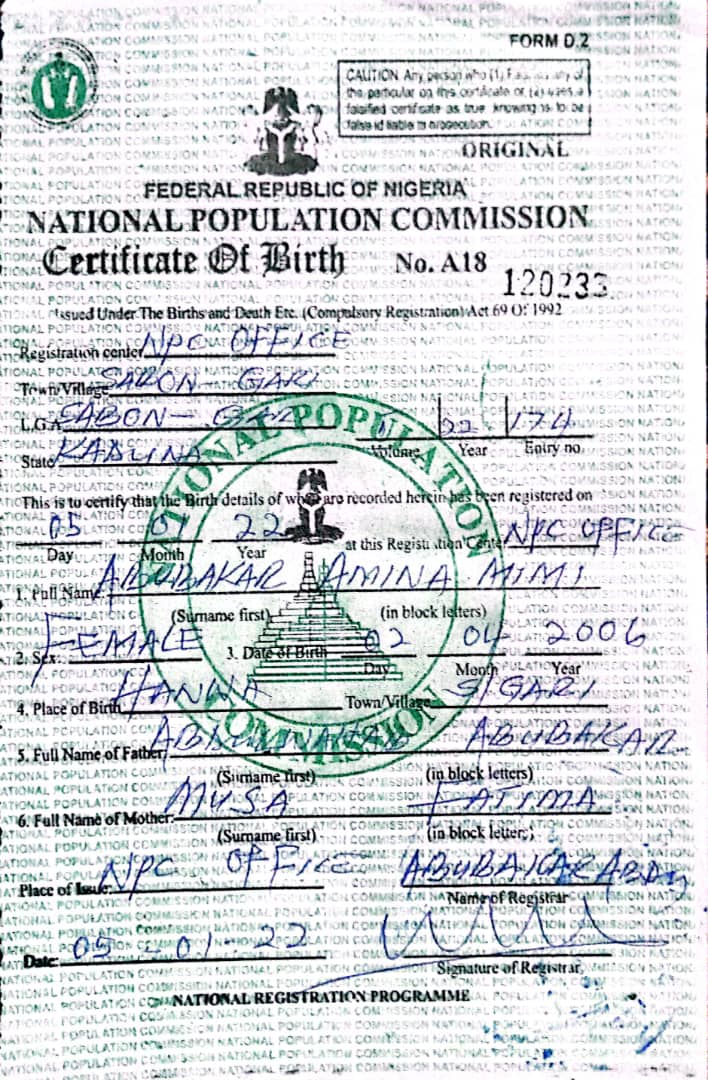 FORM D.2
CAUTION Any person who (1) any of
the particular on this certificate or (2) uses a
falsified certificate as true knowing is to be
false id liable to prosecution.
ORIGINAL
FEDERAL REPUBLIC OF NIGERIA
NATIONAL POPULATION COMMISSION
Certificate Of Birth No. A18 120233
Issued Under The Births and Death Etc. (Compulsory Registration) Act 69 Of 1992
Registration center NPC OFFICE
Town/Village SABON-GARI
L.G.A SABON-GARI 22 174
State KADUNA Volume Year Entry no.
This is to certify that the Birth details of whom are recorded herein has been registered on
05 01 22 at this Registration Center NPC OFFICE
Day Month Year
1. Full Name: ABUBAKAR AMINA MIMI
(Surname first) (in block letters)
2. Sex: FEMALE 3. Date of Birth 02 04 2006
Day Month Year
4. Place of Birth HANWA Town/Village S/GARI
5. Full Name of Father ABUBAKAR
(Surname first) (in block letters)
6. Full Name of Mother: MUSA FATIMA
(Surname first) (in block letters)
Place of Issue: NPC OFFICE ABUBAKAR
Name of Registrar
Date: 05-01-22
Signature of Registrar
NATIONAL REGISTRATION PROGRAMME
NATIONAL POPULATION
COMMISSION